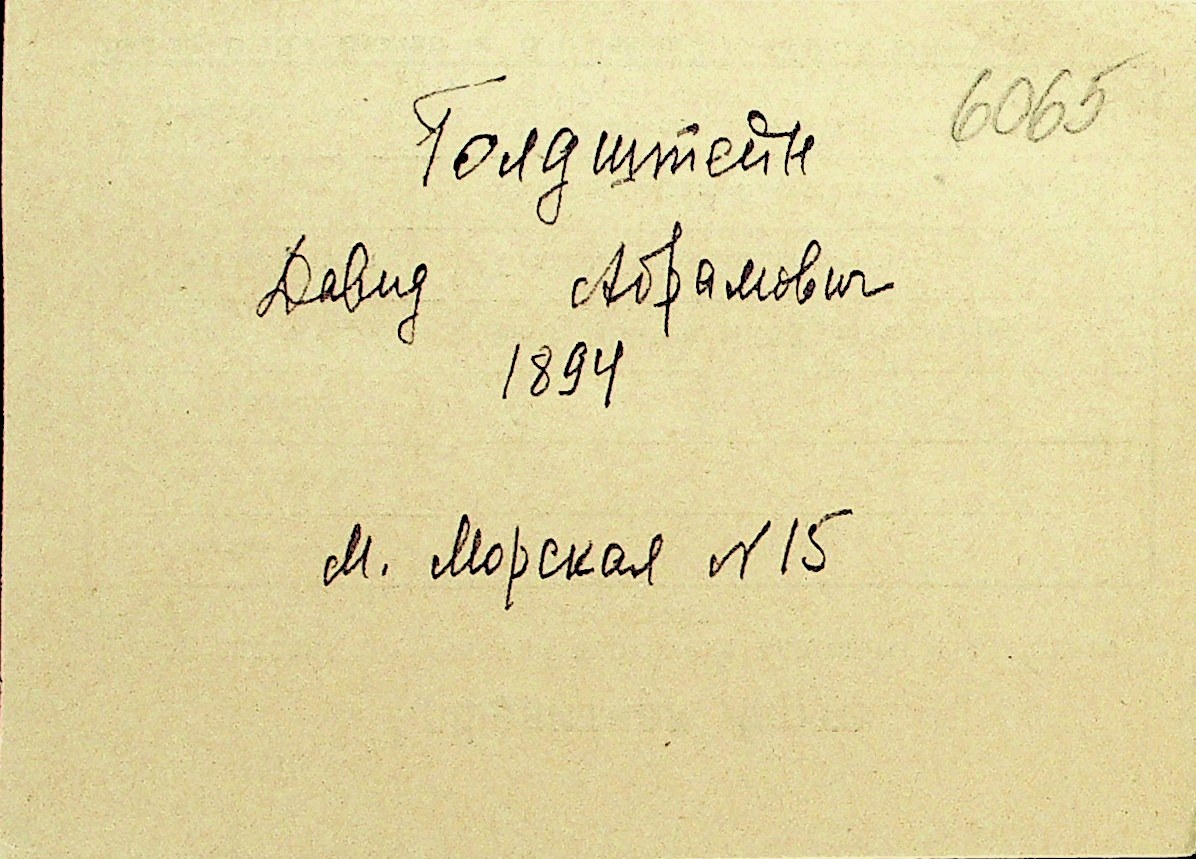 6065
Голдштейн
Давид Абрамович
1894
М. Морская N 15